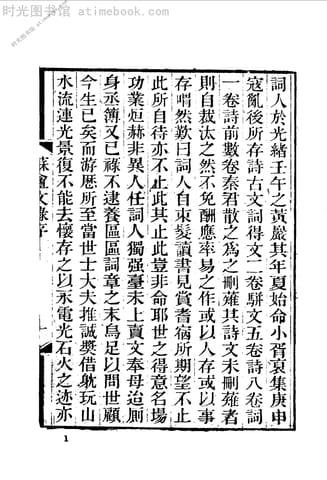 时光图书馆 - atimebook.com
詞人於光緒壬午之黃嚴其年夏始命小胥裒集庚申
寇亂後所存詩古文詞得文二卷騈文五卷詩八卷詞
一卷詩前數卷秦君散之為之刪薙其詩文未刪薙者
則自拔汰之然不免酬應率易之作或以人存或以事
存喟然歎曰詞人自束髮讀書見賞耆宿所期望不止
此所自待亦不止此其止此豈非命耶世之得意名場
功業烜赫非異人任詞人獨强臺未上賣文奉母迨厠
身丞簿又已祿不逮養區區詞章之末烏足以問世顧
今生已矣而游歷所至當世士大夫推誠奬借躭玩山
水流連光景復不能去懷存之以永電光石火之迹亦
文
序
1